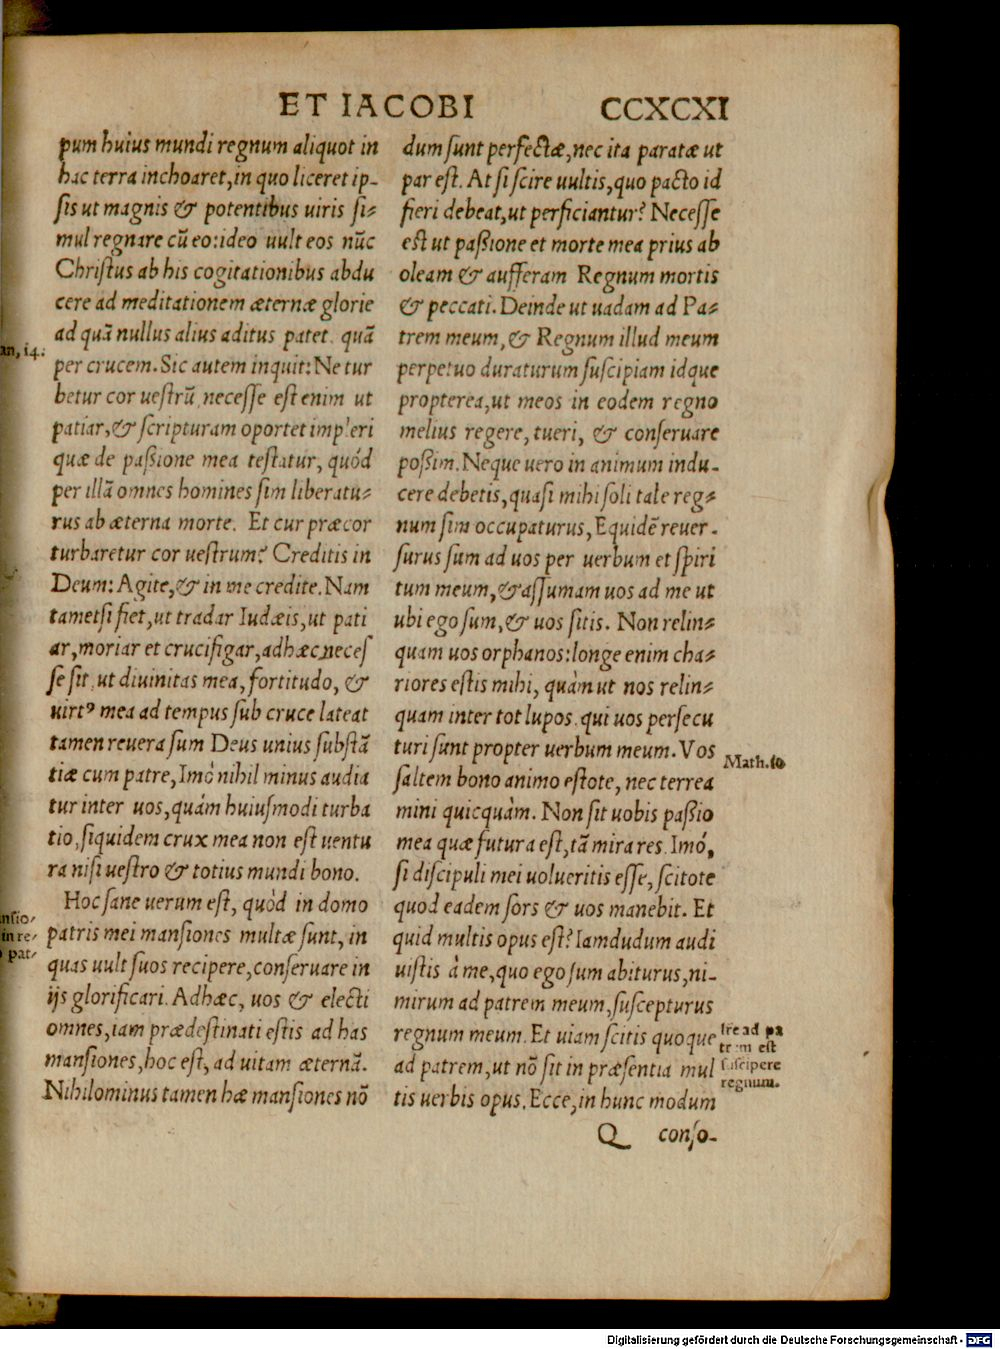 ET IACOBI CCXCXI
pum huius mundi regnum aliquot in
hac terra inchoaret, in quo liceret ip-
sis ut magnis & potentibus uiris si-
mul regnare cũ eo: ideo uult eos nũc
Christus ab his cogitationibus abdu
cere ad meditationem æternæ glorie
ad quã nullus alius aditus patet. quã
per crucem. Sic autem inquit: Ne tur
betur cor uestrũ, necesse est enim ut
patiar, & scripturam oportet impleri
quæ de passione mea testatur, quód
per illã omnes homines sim liberatu-
rus ab æterna morte. Et cur præcor
turbaretur cor uestrum? Creditis in
Deum: Agite, & in me credite. Nam
tametsi fiet, ut tradar Iudæis, ut pati
ar, moriar et crucifigar, adhæc neces
se sit, ut diuinitas mea, fortitudo, &
uirtꝰ mea ad tempus sub cruce lateat
tamen reuera sum Deus unius substã
tiæ cum patre, Imò nihil minus audia
tur inter uos, quám huiusmodi turba
tio, siquidem crux mea non est uentu
ra nisi uestro & totius mundi bono.
Hoc sane uerum est, quòd in domo
patris mei mansiones multæ sunt, in
quas uult suos recipere, conseruare in
ijs glorificari. Adhæc, uos & electi
omnes, iam prædestinati estis ad has
mansiones, hoc est, ad uitam æternã.
Nihilominus tamen hæ mansiones nõ
an, 14.
nsio-
in re-
pat-
dum sunt perfectæ, nec ita paratæ ut
par est. At si scire uultis, quo pacto id
fieri debeat, ut perficiantur? Necesse
est ut passione et morte mea prius ab
oleam & aufferam Regnum mortis
& peccati. Deinde ut uadam ad Pa-
trem meum, & Regnum illud meum
perpetuo duraturum suscipiam idque
propterea, ut meos in eodem regno
melius regere, tueri, & conseruare
possim. Neque uero in animum indu-
cere debetis, quasi mihi soli tale reg-
num sim occupaturus, Equidẽ reuer-
surus sum ad uos per uerbum et spiri
tum meum, & assumam uos ad me ut
ubi ego sum, & uos sitis. Non relin-
quam uos orphanos: longe enim cha-
riores estis mihi, quàm ut nos relin-
quam inter tot lupos. qui uos persecu
turi sunt propter uerbum meum. Vos
saltem bono animo estote, nec terrea
mini quicquàm. Non sit uobis passio
mea quæ futura est, tã mira res. Imó,
si discipuli mei uolueritis esse, scitote
quod eadem sors & uos manebit. Et
quid multis opus est? Iamdudum audi
uistis à me, quo ego sum abiturus, ni-
mirum ad patrem meum, suscepturus
regnum meum. Et uiam scitis quoque
ad patrem, ut nõ sit in præsentia mul
tis uerbis opus. Ecce, in hunc modum
Math. 10
Ire ad pa
trem est
suscipere
regnum.
Q conso-
Digitalisierung gefördert durch die Deutsche Forschungsgemeinschaft - DFG